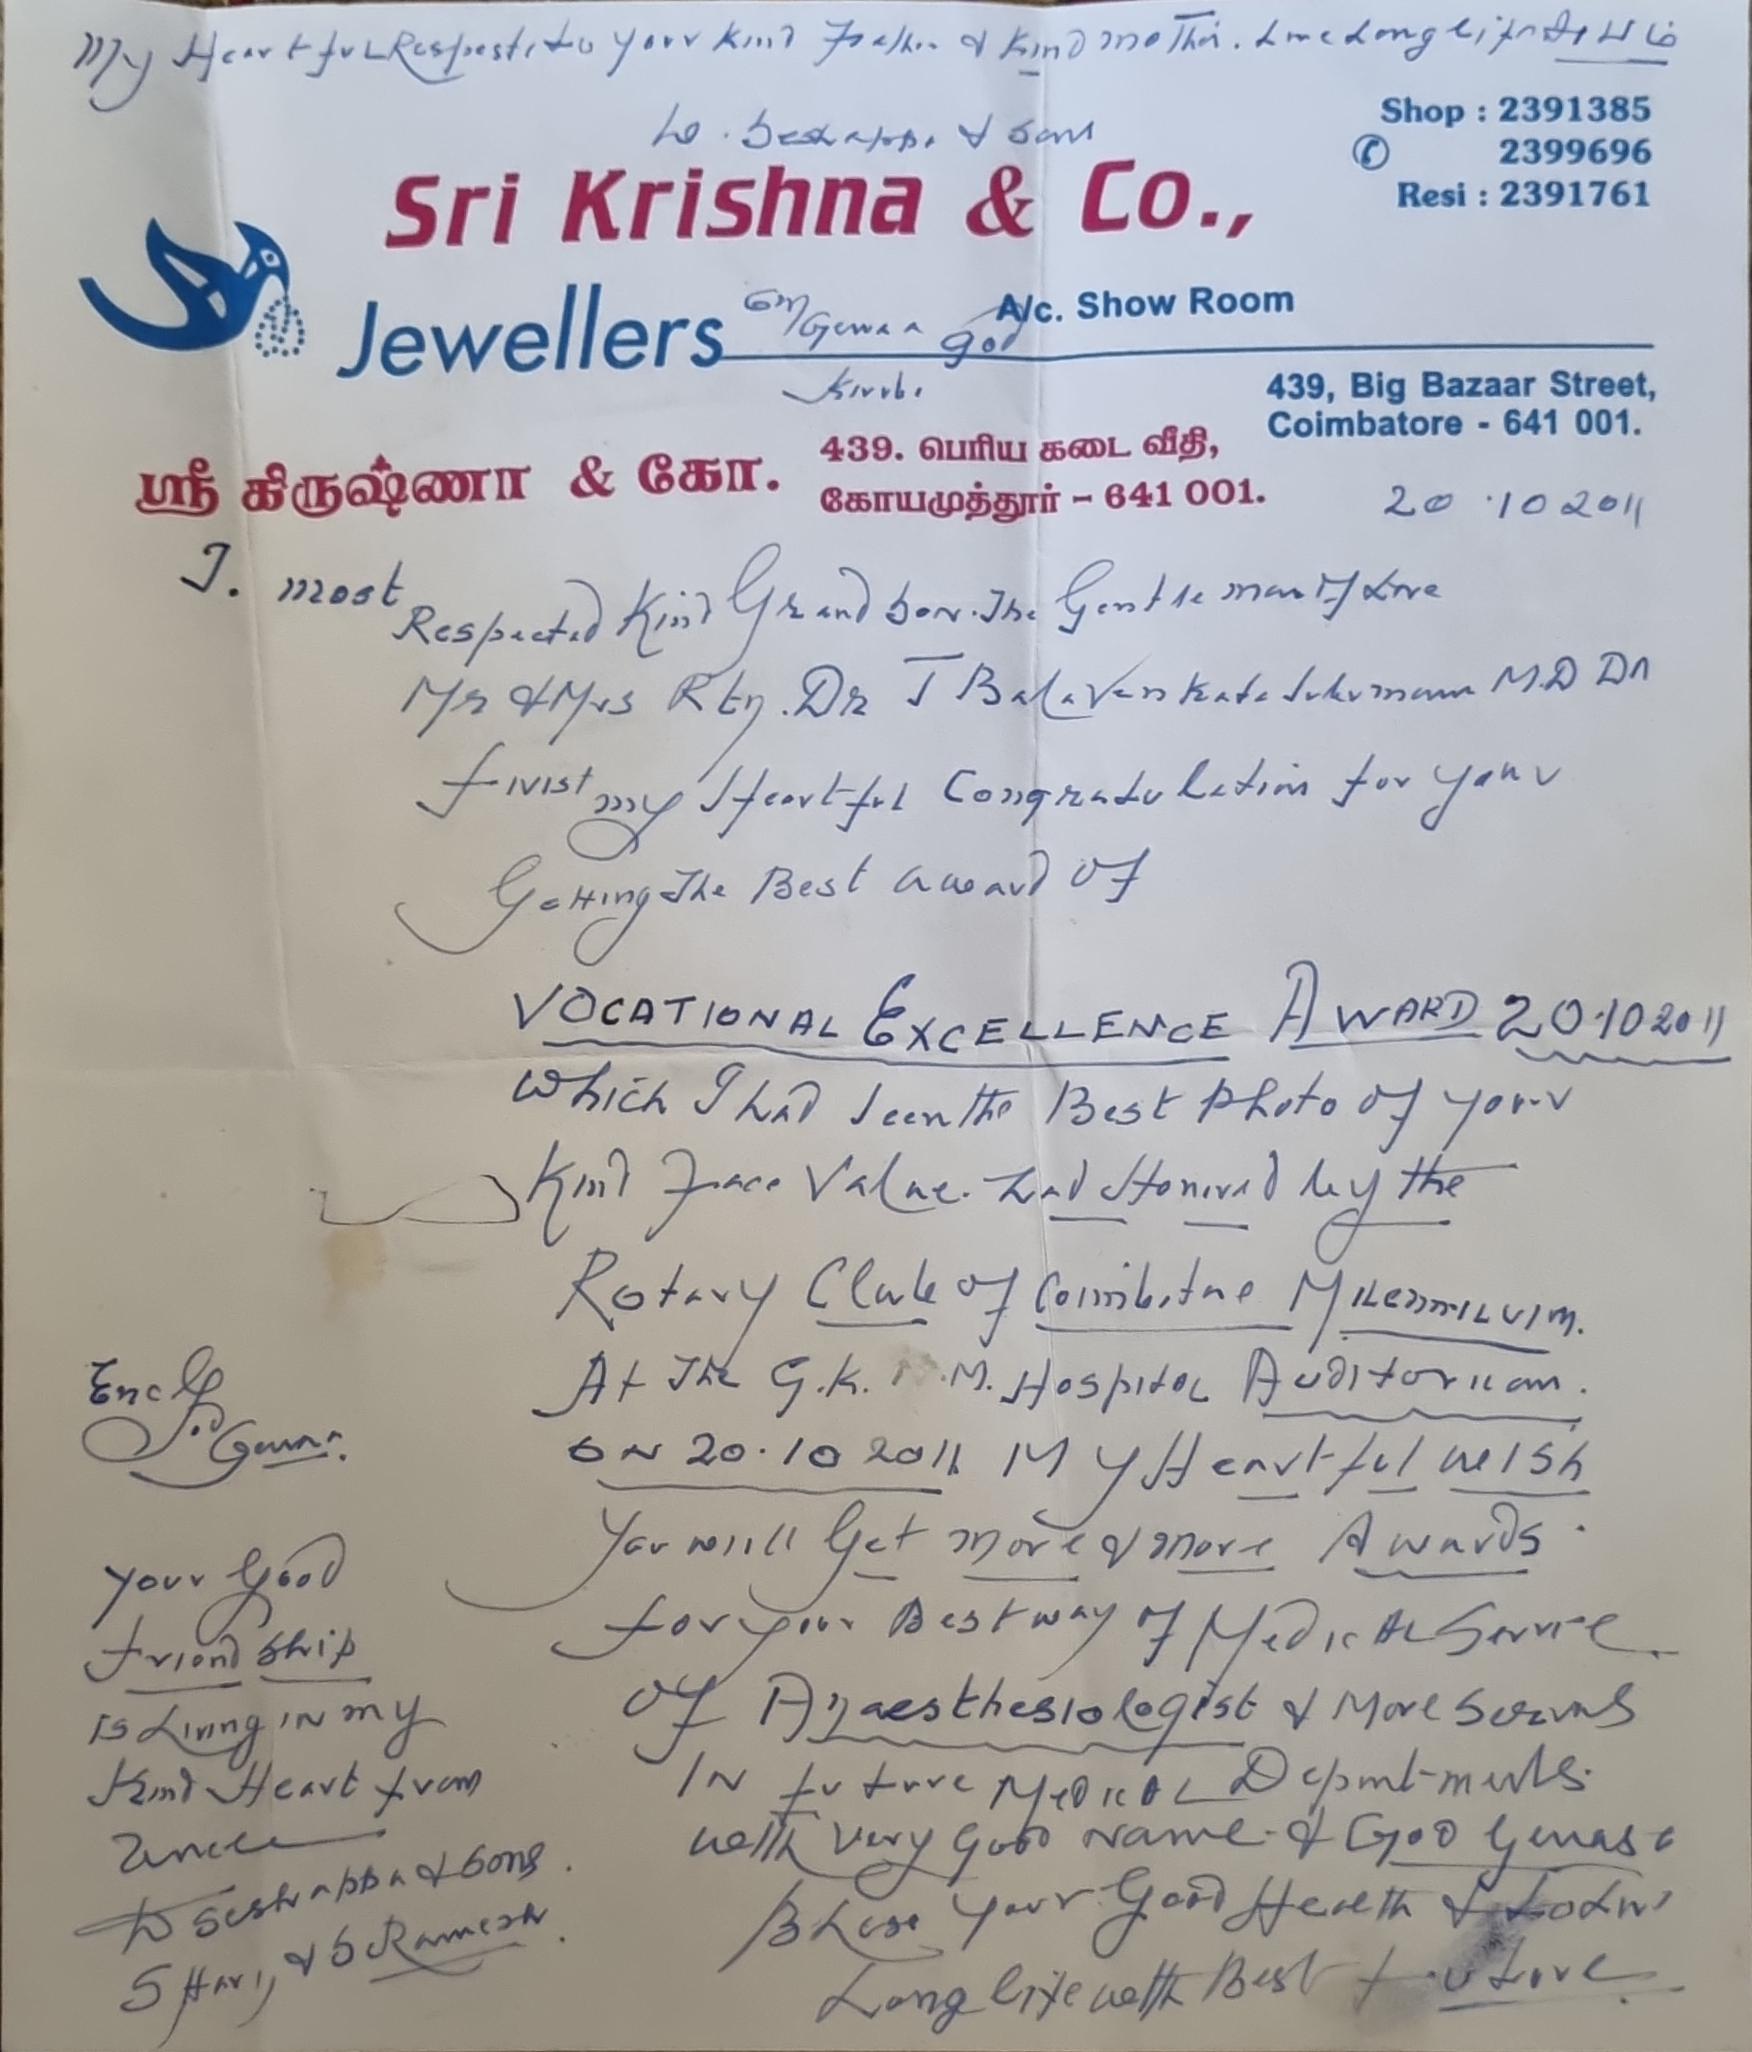 My Heartful Respects to your Kind Father & Kind mother. Live Long life
& Sons
Shop : 2391385
2399696
Resi : 2391761
Sri Krishna & Co.,
Jewellers
A/c. Show Room
om/Genesa God
439, Big Bazaar Street,
Coimbatore - 641 001.
ஸ்ரீ கிருஷ்ணா & கோ.
439. பெரிய கடை வீதி,
கோயமுத்தூர் – 641 001.
20.10 2011
J. most
Respected Kind Grand Son. The Gentleman of Love
Mr & Mrs Rtn. Dr T M.D DA
first my Heartful Congratulation for your
Getting The Best award of
VOCATIONAL EXCELLENCE AWARD 20.10 2011
Which I had seen the Best Photo of your
Kind Face Value. had Honired by the
Rotary Club of Coimbatore
At The G.K. M. Hospital Auditorium.
ON 20.10 2011 My Heartful wish
You will Get more & more Awards.
for your Best way of MEDICAL Service
of Anaesthesiologist & More
IN future MEDICAL Departments.
with very good Name & GOD
your Good Health &
Long life with Best future.
Encl
your Good
friend ship
is Living in my
Kind Heart from
Uncle
D Seshappa & Sons.
S Hari, & S Ramesh.